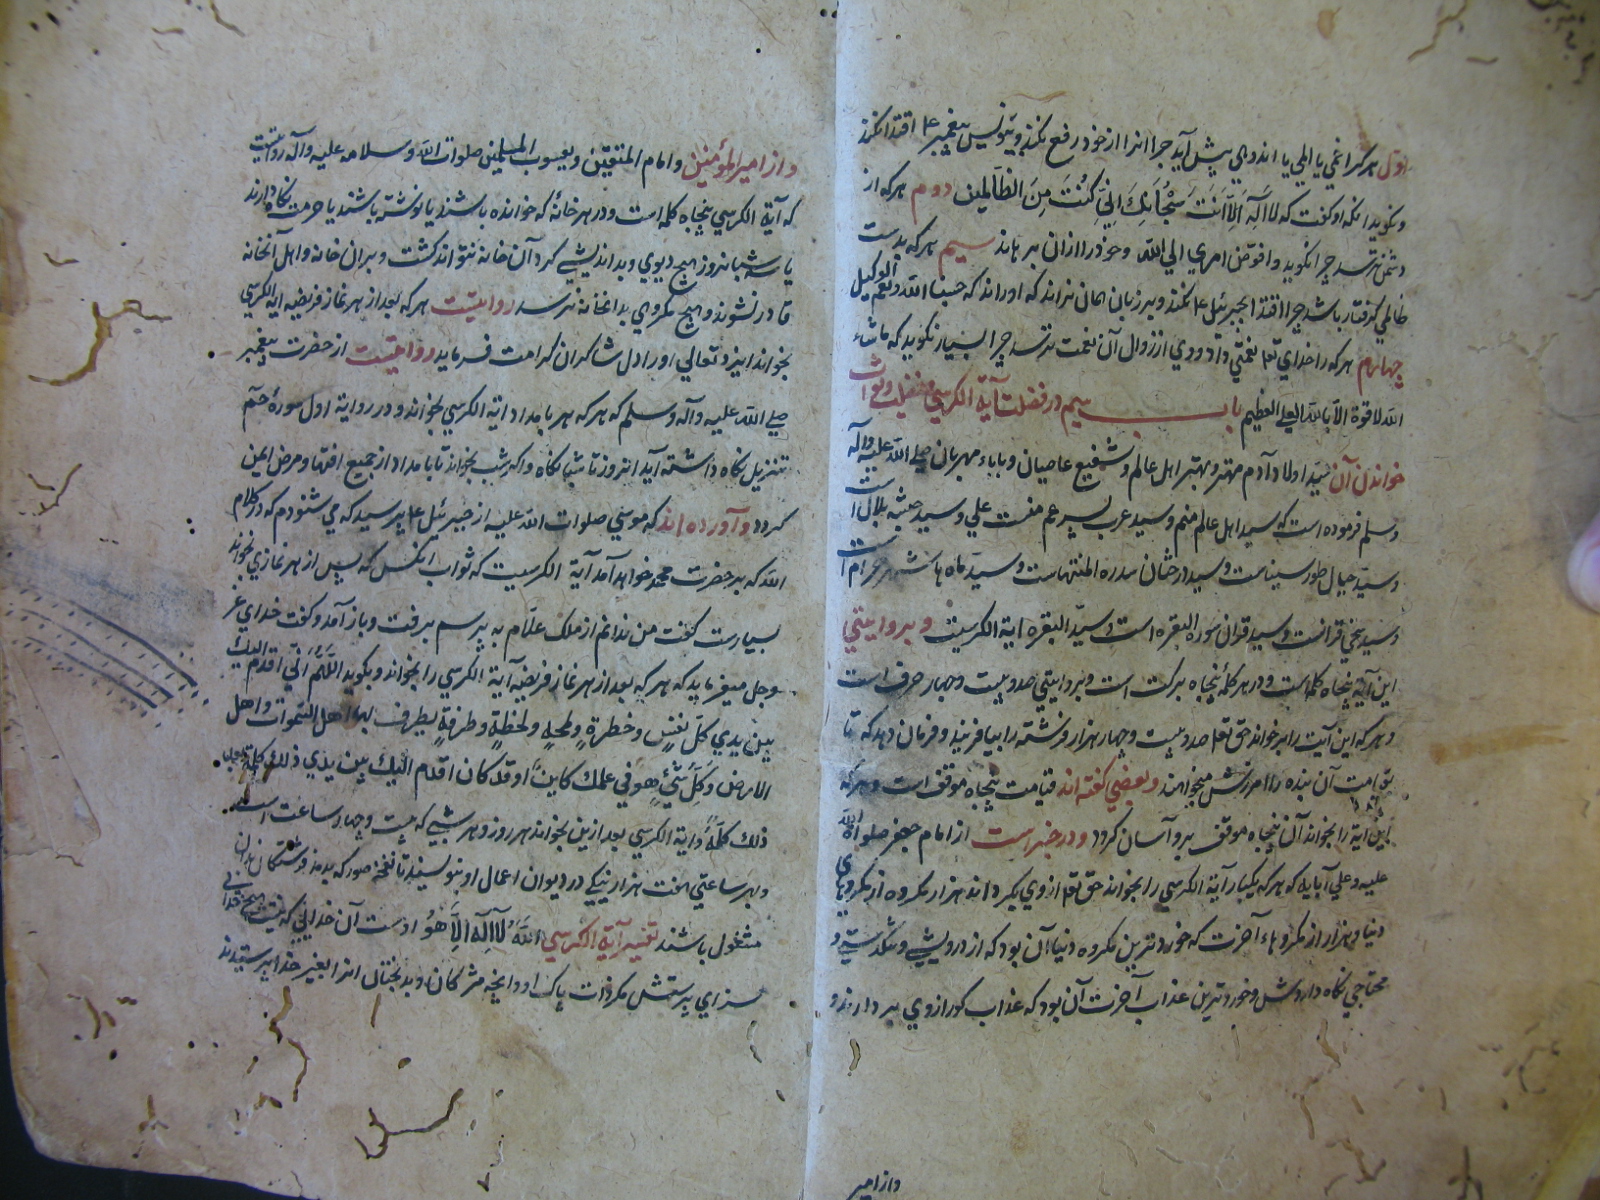 اول هر کرا غمی یا المی یا اندوهی پیش آید چرا انرا از خود رفع نکند و بیونس پیغمبر ع اقتدا نکند
و نگوید انکه او کفت که لا اله الا انت سبحانک انی کنت من الظالمین دوم هر که از
دشمن ترسد چرا نکوید و افوض امری الی الله و خود را از ان برهاند سیم هر که بدست
ظالمی کرفتار باشد چرا اقتدا بجبرئیل ع نکند و بر زبان نراند که حسبنا الله و نعم الوکیل
چهارم هر که را خدای تعا نعمتی داد و وی از زوال آن نعمت ترسد چرا بسیار نکوید که ما شاء
الله لا قوة الا بالله العلی العظیم باب سیم در فضلت آیة الکرسی و ثواب
خواندن آن سید اولاد آدم مهتر و بهتر اهل عالم و شفیع عاصیان و باباء مهربان صلی الله علیه و آله
وسلم فرموده است که سید اهل عالم منم و سید عرب پسر عم منست علی و سید حبشه بلال است
و سید جبال طور سیناست و سید درختان سدره المنتهاست و سید ماه ها شهر حرام است
و سید سخن قرانست و سید قران سوره البقره است و سید البقره ایة الکرسیت و بروایتی
این آیة پنجاه کلمه است و در هر کلمه پنجاه برکت است و بروایتی صد و بیست و چهار حرف است
و هر که این آیت را بر خواند حق تعا صد و بیست و چهار هزار فرشته را بیافریند و فرمان دهد که تا
بقیامت آن بنده را آمرزش میخواهند و بعضی کفته اند قیامت پنجاه موقف است و هر که
این آیة را بخواند آن پنجاه موقف برو آسان کردد و در خبر است از امام جعفر صلوات الله
علیه و علی آبایه که هر که یکبار آیة الکرسی را بخواند حق تعا از وی بکرداند هزار مکروه از مکروهای
دنیا و هزار از مکروهاء آخرت که خوردترین مکروه دنیا آن بود که از درویشی و تنکدستی و
محتاجی نکاه داردش و خوردترین عذاب آخرت آن بود که عذاب کور از وی بردارند و
واز امیر
و از امیر المؤمنین و امام المتقین و یعسوب المسلمین صلوات الله و سلامه علیه و آله روایتست
که آیة الکرسی پنجاه کلمه است و در هر خانۀ که خوانده باشند یا نوشته باشند یا حرمت نکاه دارند
یا سه شبانروز هیچ دیوی و بداندیشی کرد آن خانه نتواند کشت و بران خانه و اهل آنخانه
قادر نشوند و هیچ مکروهی بدانخانه نرسد روایتست هر که بعد از هر نماز فریضه ایة الکرسی
بخواند ایزد تعالی او را دل شاکران کرامت فرماید روایتست از حضرت پیغمبر
صلی الله علیه و آله وسلم که هر که هر بامداد ایة الکرسی بخواند و در روایة اول سورۀ حم
تنزیل نکاه داشته آید انروز تا شبانکاه و اکر شب بخواند تا بامداد از جمیع افتها و مرض ایمن
کردد و آورده اند که موسی صلوات الله علیه از جبرئیل ع پرسید که می شنودم که در کلام
الله که بر حضرت محمد خواهد آمد آیة الکرسیست که ثواب انکس که پس از هر نمازی بخواند
بسیارست کفت من ندانم از ملک علام به پرسم برفت و باز آمد و کفت خدای عز
وجل میفرماید که هر که بعد از هر نماز فریضه آیة الکرسی را بخواند و بکوید اللهم انی اقدم الیک
بین یدی کل نفس و خطرة و لمحة و لحظة و طرفة یطرف بها اهل السموات و اهل
الارض و کل شئ هو فی علمک کاین او قد کان اقدم الیک بین یدی ذلک کله
ذلک کله و ایة الکرسی بعد ازین بخواند هر روز و هر شبی که بیست و چهار ساعت است
و بهر ساعتی هفت هزار نیکی در دیوان اعمال او بنویسند تا نفخه صور که بدمند و فرشتکان بدان
مشغول باشند تفسیر آیة الکرسی الله لا اله الا هو اوست آن خدایی که نیست هیچ خدایی
سزای پرستش مکر ذات پاک او و انچه مشرکان و بدبختان انرا بغیر خدا پرستیدند